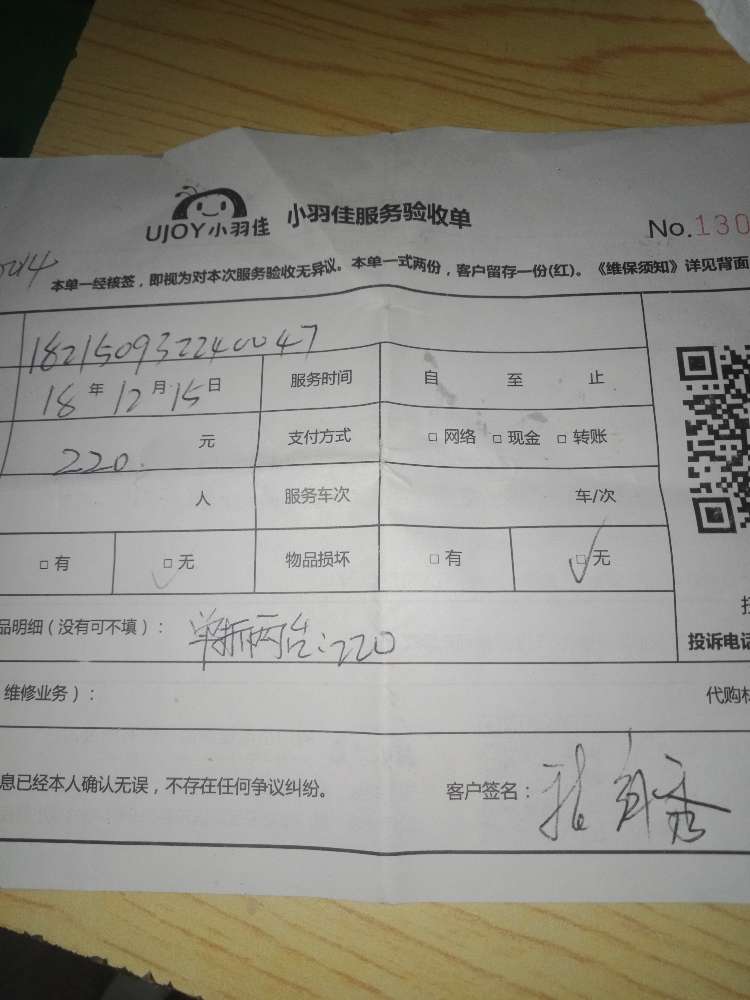 UJOY小羽佳 小羽佳服务验收单
No.130
本单一经核签，即视为对本次服务验收无异议。本单一式两份，客户留存一份(红)。《维保须知》详见背面
18215093224004 7
18年12月15日 服务时间 自 至 止
220. 元 支付方式 □网络 □现金 □转账
人 服务车次 车/次
□有 □无 物品损坏 □有 □无
品明细（没有可不填）： 单拆两台：220
投诉电话
维修业务）： 代购材
息已经本人确认无误，不存在任何争议纠纷。 客户签名：